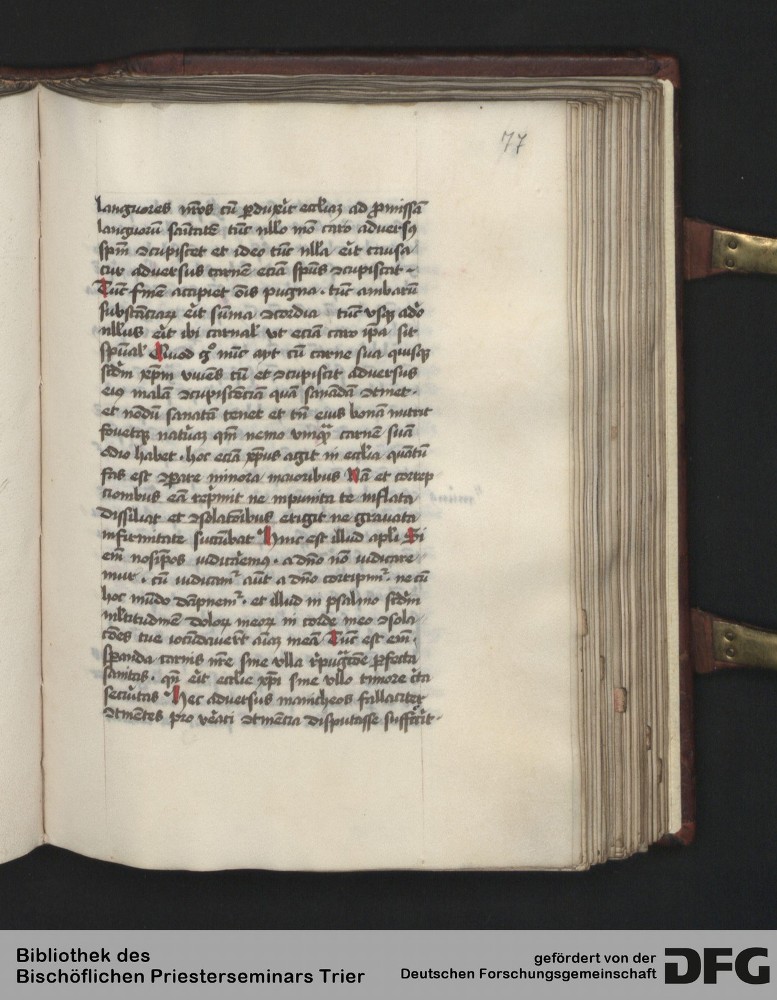 77
languores nr̄os cū ꝑduxit eccl̄iaz ad ꝓmissā
languorū sanitatē tūc nllo mo caro adversꝯ
spm̄ ꝯcupiscet et ideo tūc nlla erit causa
cur adversus carnē eciā spūs ꝯcupiscat ·
Tūc finē accipiet oīs pugna · tūc ambarū
substāciaꝝ erit sūma ꝯcordia tūc usqꝫ adeo
nllus erit ibi carnal' ut eciā caro ip̄a sit
spūal' Quod gͦ nūc agit cū carne sua quisqꝫ
scdm̄ xp̄m vivēs cū et ꝯcupiscit adversus
eiꝯ malā ꝯcupiscēciā quā sanādā ꝯtinet ·
et nōdū sanatā tenet et tn̄ eius bonā nutrit
fovetqꝫ naturaz qm̄ nemo unqᷓ carnē suā
odio habet · hoc eciā xp̄us agit in eccl̄ia quātū
fas est ꝯpare minora maioribus Nā et correp
cionibus eā rep̄mit ne inpunita te inflata
dissiliat et ꝯsolacōibus erigit ne gravata
infirmitate sucūbat Hinc est illud apl̄i Si
em̄ nosip̄os iudicarem̄ꝯ · a dn̄o nō iudicare
mur · cū iudicam̄ᷣ aūt a dn̄o corripimᷣ · ne cū
hoc mūdo dāpnemᷣ · et illud in psalmo scdm̄
ml̄titudinē doloꝝ meoꝝ in corde meo ꝯsola
cōes tue iocūdaverūt aīaz meā Tūc est em̄ ·
spanda carnis nr̄e sine ulla r̄pugᷓcōe ꝑfecta
sanitas · qn̄ erit eccl̄ie xp̄i sine ullo timore c̄ta
securitas Hec adversus manicheos fallaciter
ꝯtinētes pro veraci ꝯtinēcia disputasse suffecerit ·
Bibliothek des
Bischöflichen Priesterseminars Trier
gefördert von der
Deutschen Forschungsgemeinschaft
DFG